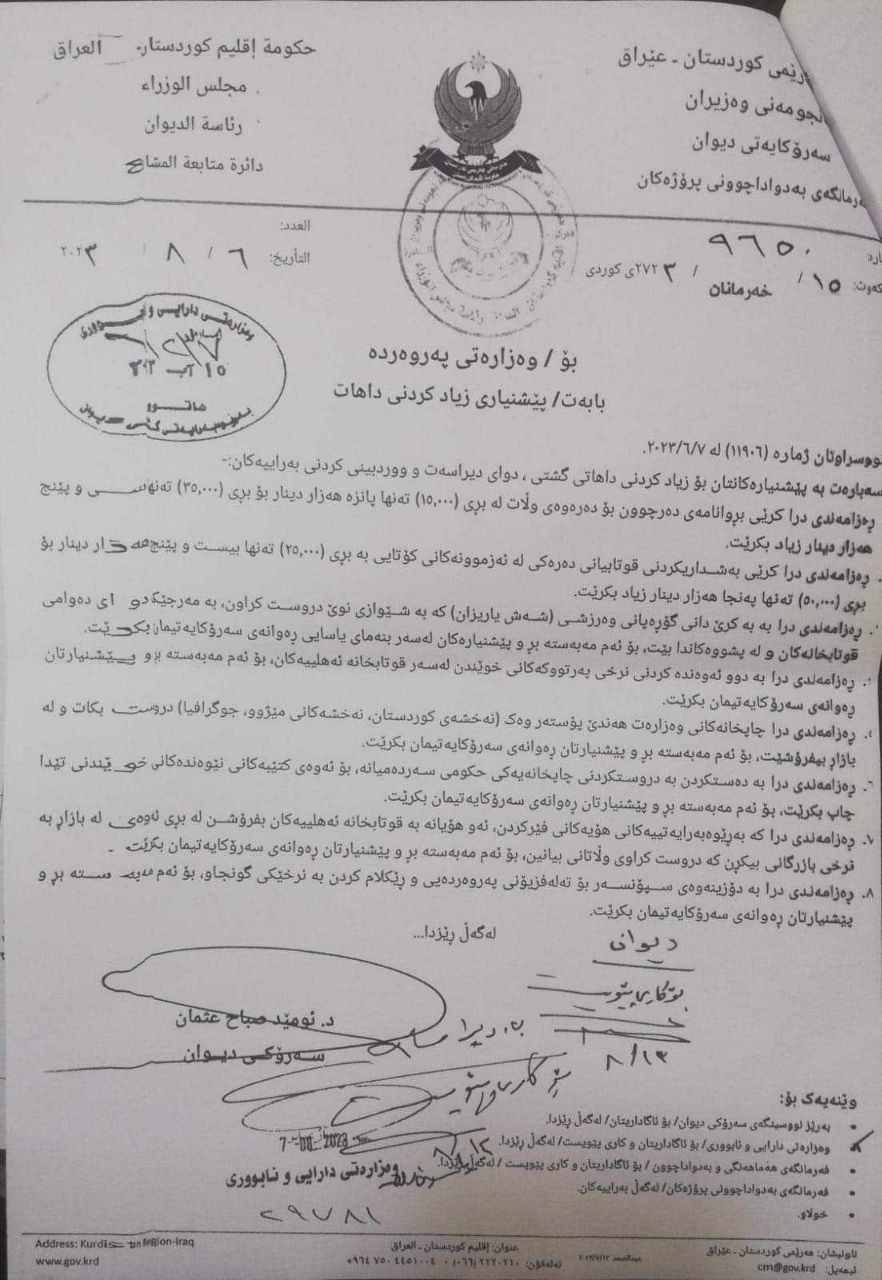 حكومة إقليم كوردستان العراق
مجلس الوزراء
رئاسة الديوان
دائرة متابعة
كوردستان ـ عێراق
وەزیران
سەرۆکایەتی دیوان
بەدواداچوونی پرۆژەکان
العدد:
التأريخ: ٦ / ٨ / ٢٠٢٣
٩٦٥٠
١٥ / خەرمانان / ٢٧٢٣ی کوردی
وەزارەتی دارایی و
١٥ آب
هاتوو
بۆ / وەزارەتی پەروەردە
بابەت/ پێشنیاری زیاد کردنی داهات
نووسراوتان ژمارە (١١٩٠٦) لە ٢٠٢٣/٦/٧.
سەبارەت بە پێشنیارەکانتان بۆ زیاد کردنی داهاتی گشتی ، دوای دیراسەت و ووردبینی کردنی بەراییەکان:-
ڕەزامەندی درا کرێی بڕوانامەی دەرچوون بۆ دەرەوەی وڵات لە بڕی (١٥,٠٠٠) تەنها پانزە هەزار دینار بۆ بڕی (٣٥,٠٠٠) تەنها سی و پێنج
هەزار دینار زیاد بکرێت.
ڕەزامەندی درا کرێی بەشداریکردنی قوتابیانی دەرەکی لە ئەزموونەکانی کۆتایی بە بڕی (٢٥,٠٠٠) تەنها بیست و پێنج هەزار دینار بۆ
بڕی (٥٠,٠٠٠) تەنها پەنجا هەزار دینار زیاد بکرێت.
ڕەزامەندی درا بە بە کرێ دانی گۆڕەپانی وەرزشی (شەش یاریزان) کە بە شێوازی نوێ دروست کراون، بە مەرجێک دوای دەوامی
قوتابخانەکان و لە پشووەکاندا بێت، بۆ ئەم مەبەستە بڕ و پێشنیارەکان لەسەر بنەمای یاسایی ڕەوانەی سەرۆکایەتیمان بکرێت.
ڕەزامەندی درا بە دوو ئەوەندە کردنی نرخی پەرتووکەکانی خوێندن لەسەر قوتابخانە ئەهلییەکان، بۆ ئەم مەبەستە بڕ و پێشنیارتان
ڕەوانەی سەرۆکایەتیمان بکرێت.
ڕەزامەندی درا چاپخانەکانی وەزارەت هەندێ پۆستەر وەک (نەخشەی کوردستان، نەخشەکانی مێژوو، جوگرافیا) دروست بکات و لە
بازاڕ بیفرۆشێت، بۆ ئەم مەبەستە بڕ و پێشنیارتان ڕەوانەی سەرۆکایەتیمان بکرێت.
٦. ڕەزامەندی درا بە دەستکردن بە دروستکردنی چاپخانەیەکی حکومی سەردەمیانە، بۆ ئەوەی کتێبەکانی نێوەندەکانی خوێندنی تێدا
چاپ بکرێت، بۆ ئەم مەبەستە بڕ و پێشنیارتان ڕەوانەی سەرۆکایەتیمان بکرێت.
٧. ڕەزامەندی درا کە بەڕێوەبەرایەتییەکانی هۆیەکانی فێرکردن، ئەو هۆیانە بە قوتابخانە ئەهلییەکان بفرۆشن لە بڕی ئەوەی لە بازاڕ بە
نرخی بازرگانی بیکڕن کە دروست کراوی وڵاتانی بیانین، بۆ ئەم مەبەستە بڕ و پێشنیارتان ڕەوانەی سەرۆکایەتیمان بکرێت.
٨. ڕەزامەندی درا بە دۆزینەوەی سپۆنسەر بۆ تەلەفزیۆنی پەروەردەیی و ڕێکلام کردن بە نرخێکی گونجاو، بۆ ئەم مەبەستە بڕ و
پێشنیارتان ڕەوانەی سەرۆکایەتیمان بکرێت.
لەگەڵ ڕێزدا...
دیوان
بۆ کاری پێویست
٨/١٣
د. ئومێد صباح عثمان
سەرۆکی دیوان
2023
وەزارەتی دارایی و ئابووری
٢٩٧٨١
وێنەیەک بۆ:
• بەڕێز نووسینگەی سەرۆکی دیوان/ بۆ ئاگاداریتان/ لەگەڵ ڕێزدا.
• وەزارەتی دارایی و ئابووری/ بۆ ئاگاداریتان و کاری پێویست/ لەگەڵ ڕێزدا.
• فەرمانگەی هەماهەنگی و بەدواداچوون / بۆ ئاگاداریتان و کاری پێویست / لەگەڵ ڕێزدا.
• فەرمانگەی بەدواداچوونی پرۆژەکان/ لەگەڵ بەراییەکان.
• خولاو.
ناونیشان: هەرێمی کوردستان ـ عێراق
عنوان: إقليم كوردستان ـ العراق
Address: Kurdistan Region-Iraq
ئیمەیل: cm@gov.krd
www.gov.krd